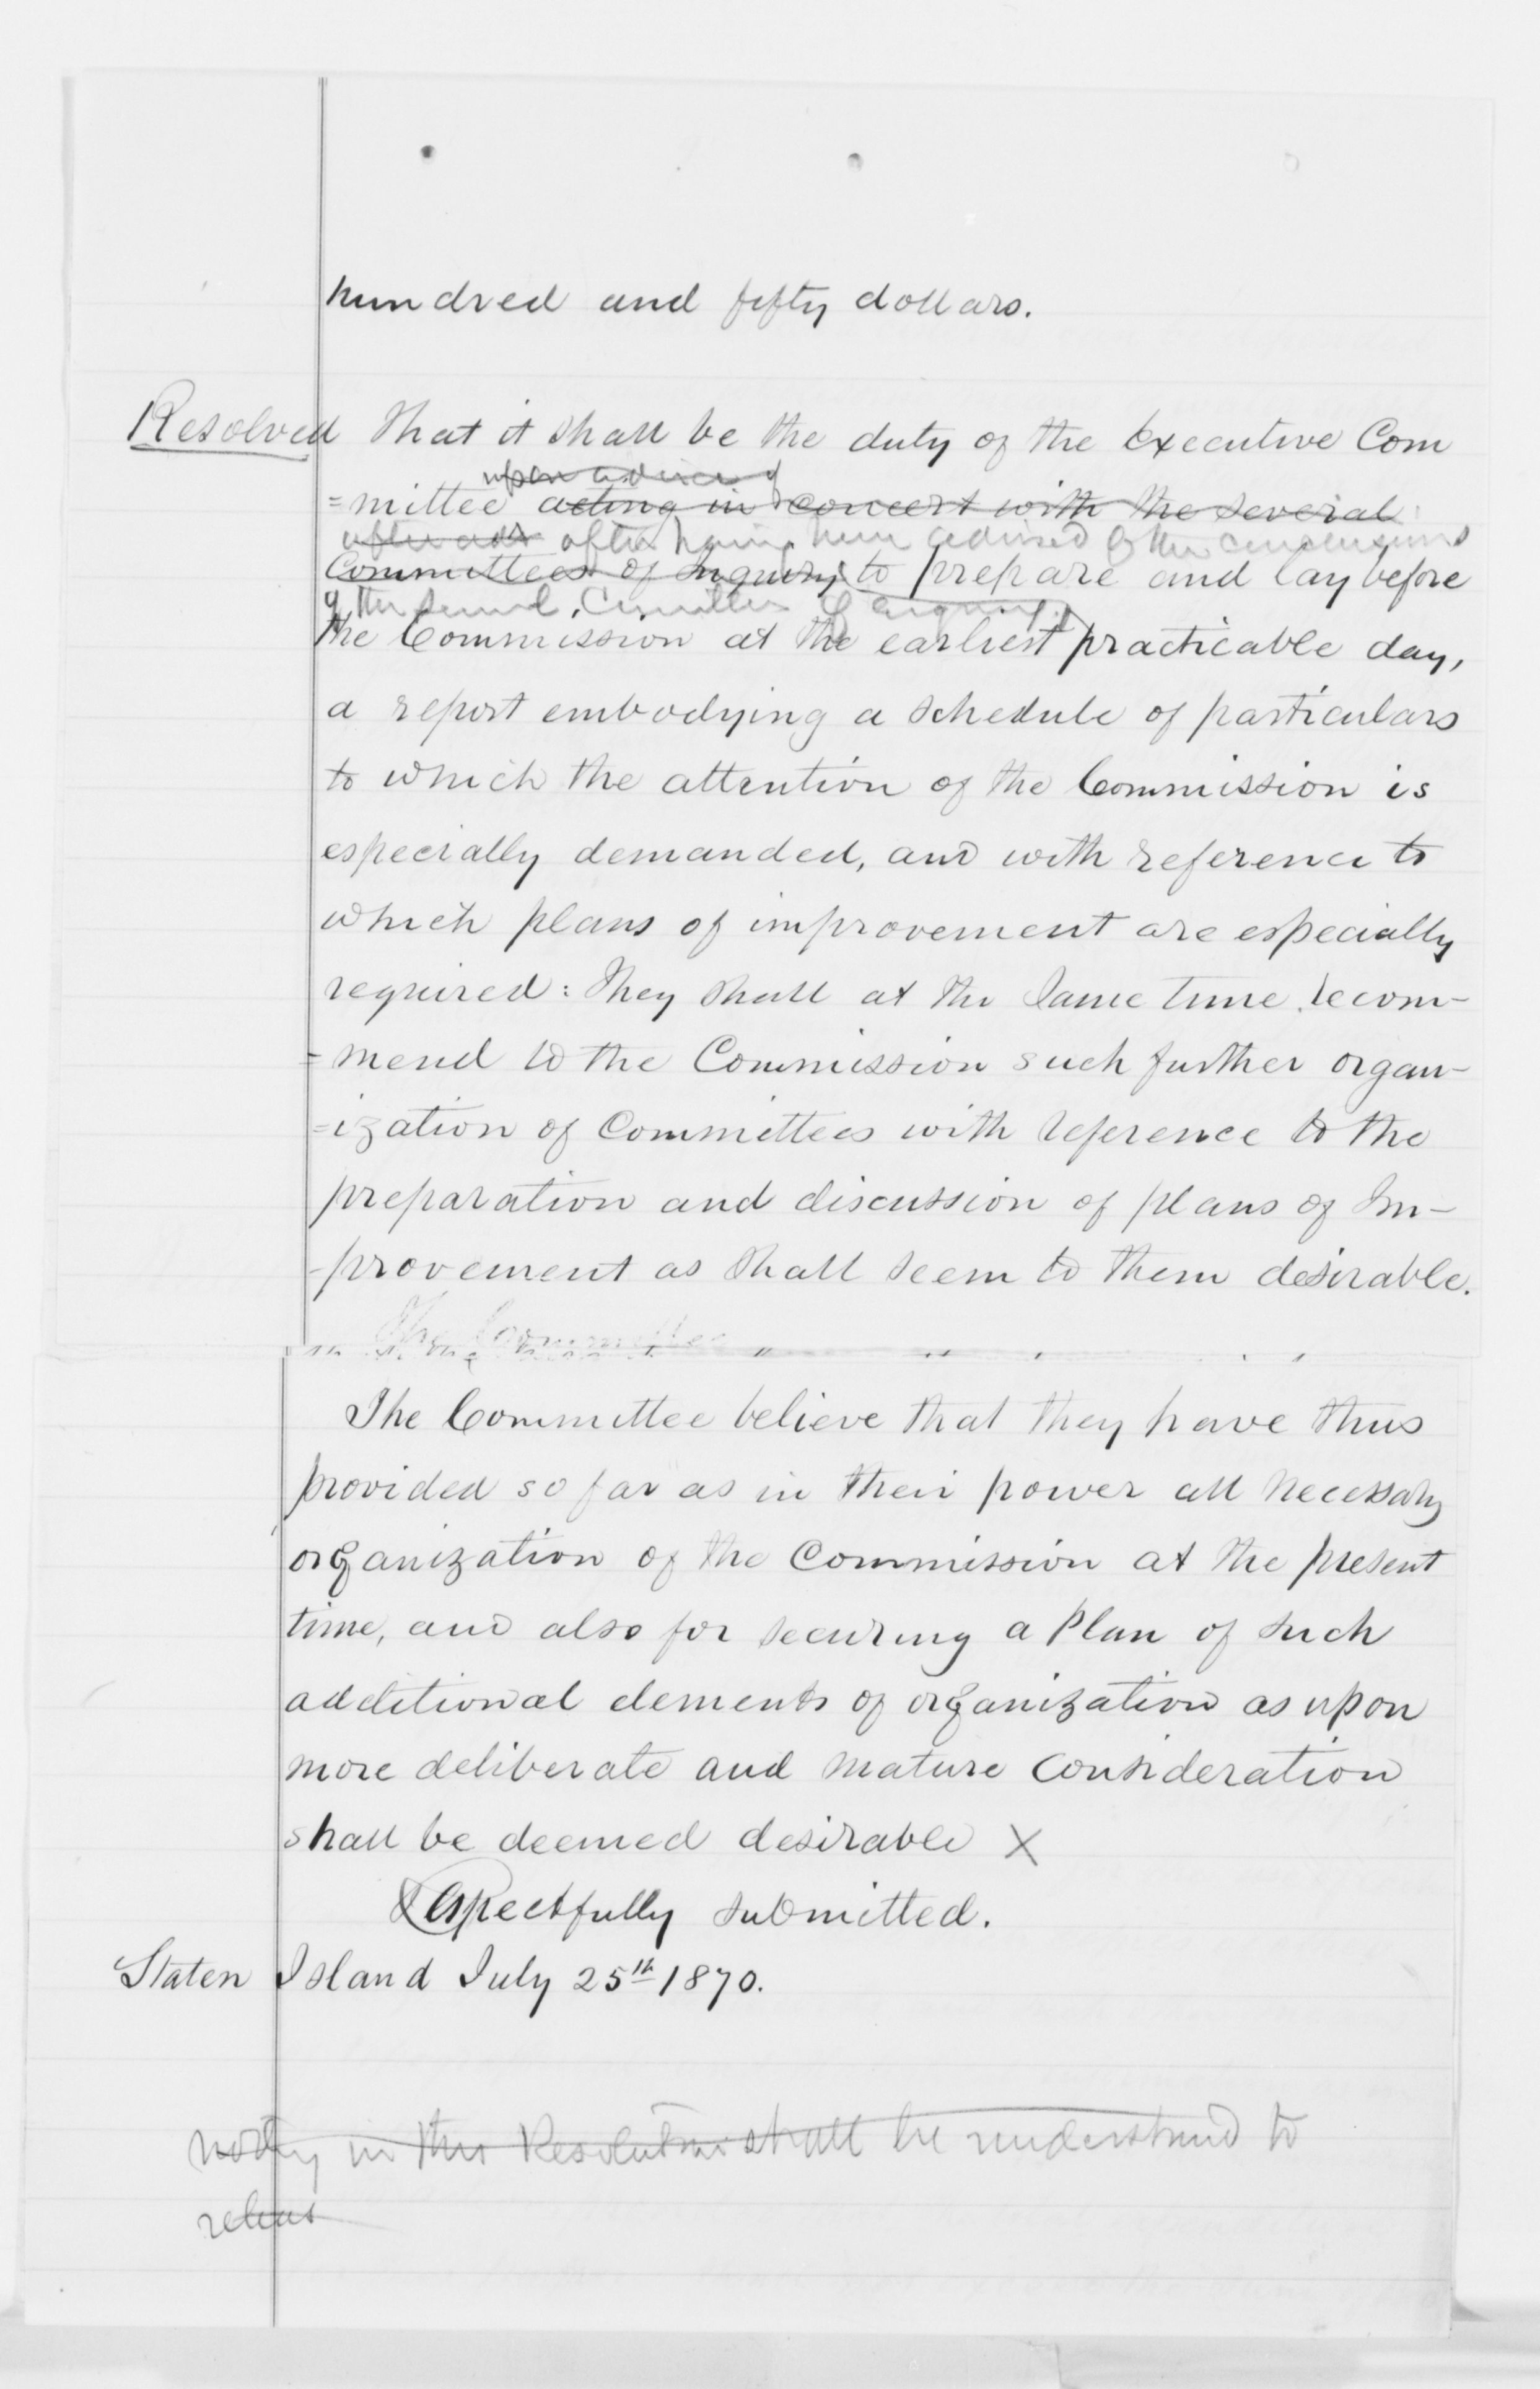 hundred and fifty dollars.
Resolved That it shall be the duty of the Executive Com
upon advice of
=mittee acting in concert with the several
after having been advised of the conclusions
Committees of Inquiry to prepare and lay before
of the several Committees of enquiry
the Commission at the earliest practicable day,
a report embodying a schedule of particulars
to which the attention of the Commission is
especially demanded, and with reference to
which plans of improvement are especially
required: They shall at the same time recom-
-mend to the Commission such further organ-
=ization of Committees with reference to the
preparation and discussion of plans of Im-
-provement as shall seem to them desirable.
The Committee
The Committee believe that they have thus
provided so far as in their power all necessary
organization of the Commission at the present
time, and also for securing a Plan of such
additional elements of organization as upon
more deliberate and mature consideration
shall be deemed desirable X
Respectfully submitted.
Staten Island July 25th 1870.
nothing in this Resolution shall be understood to